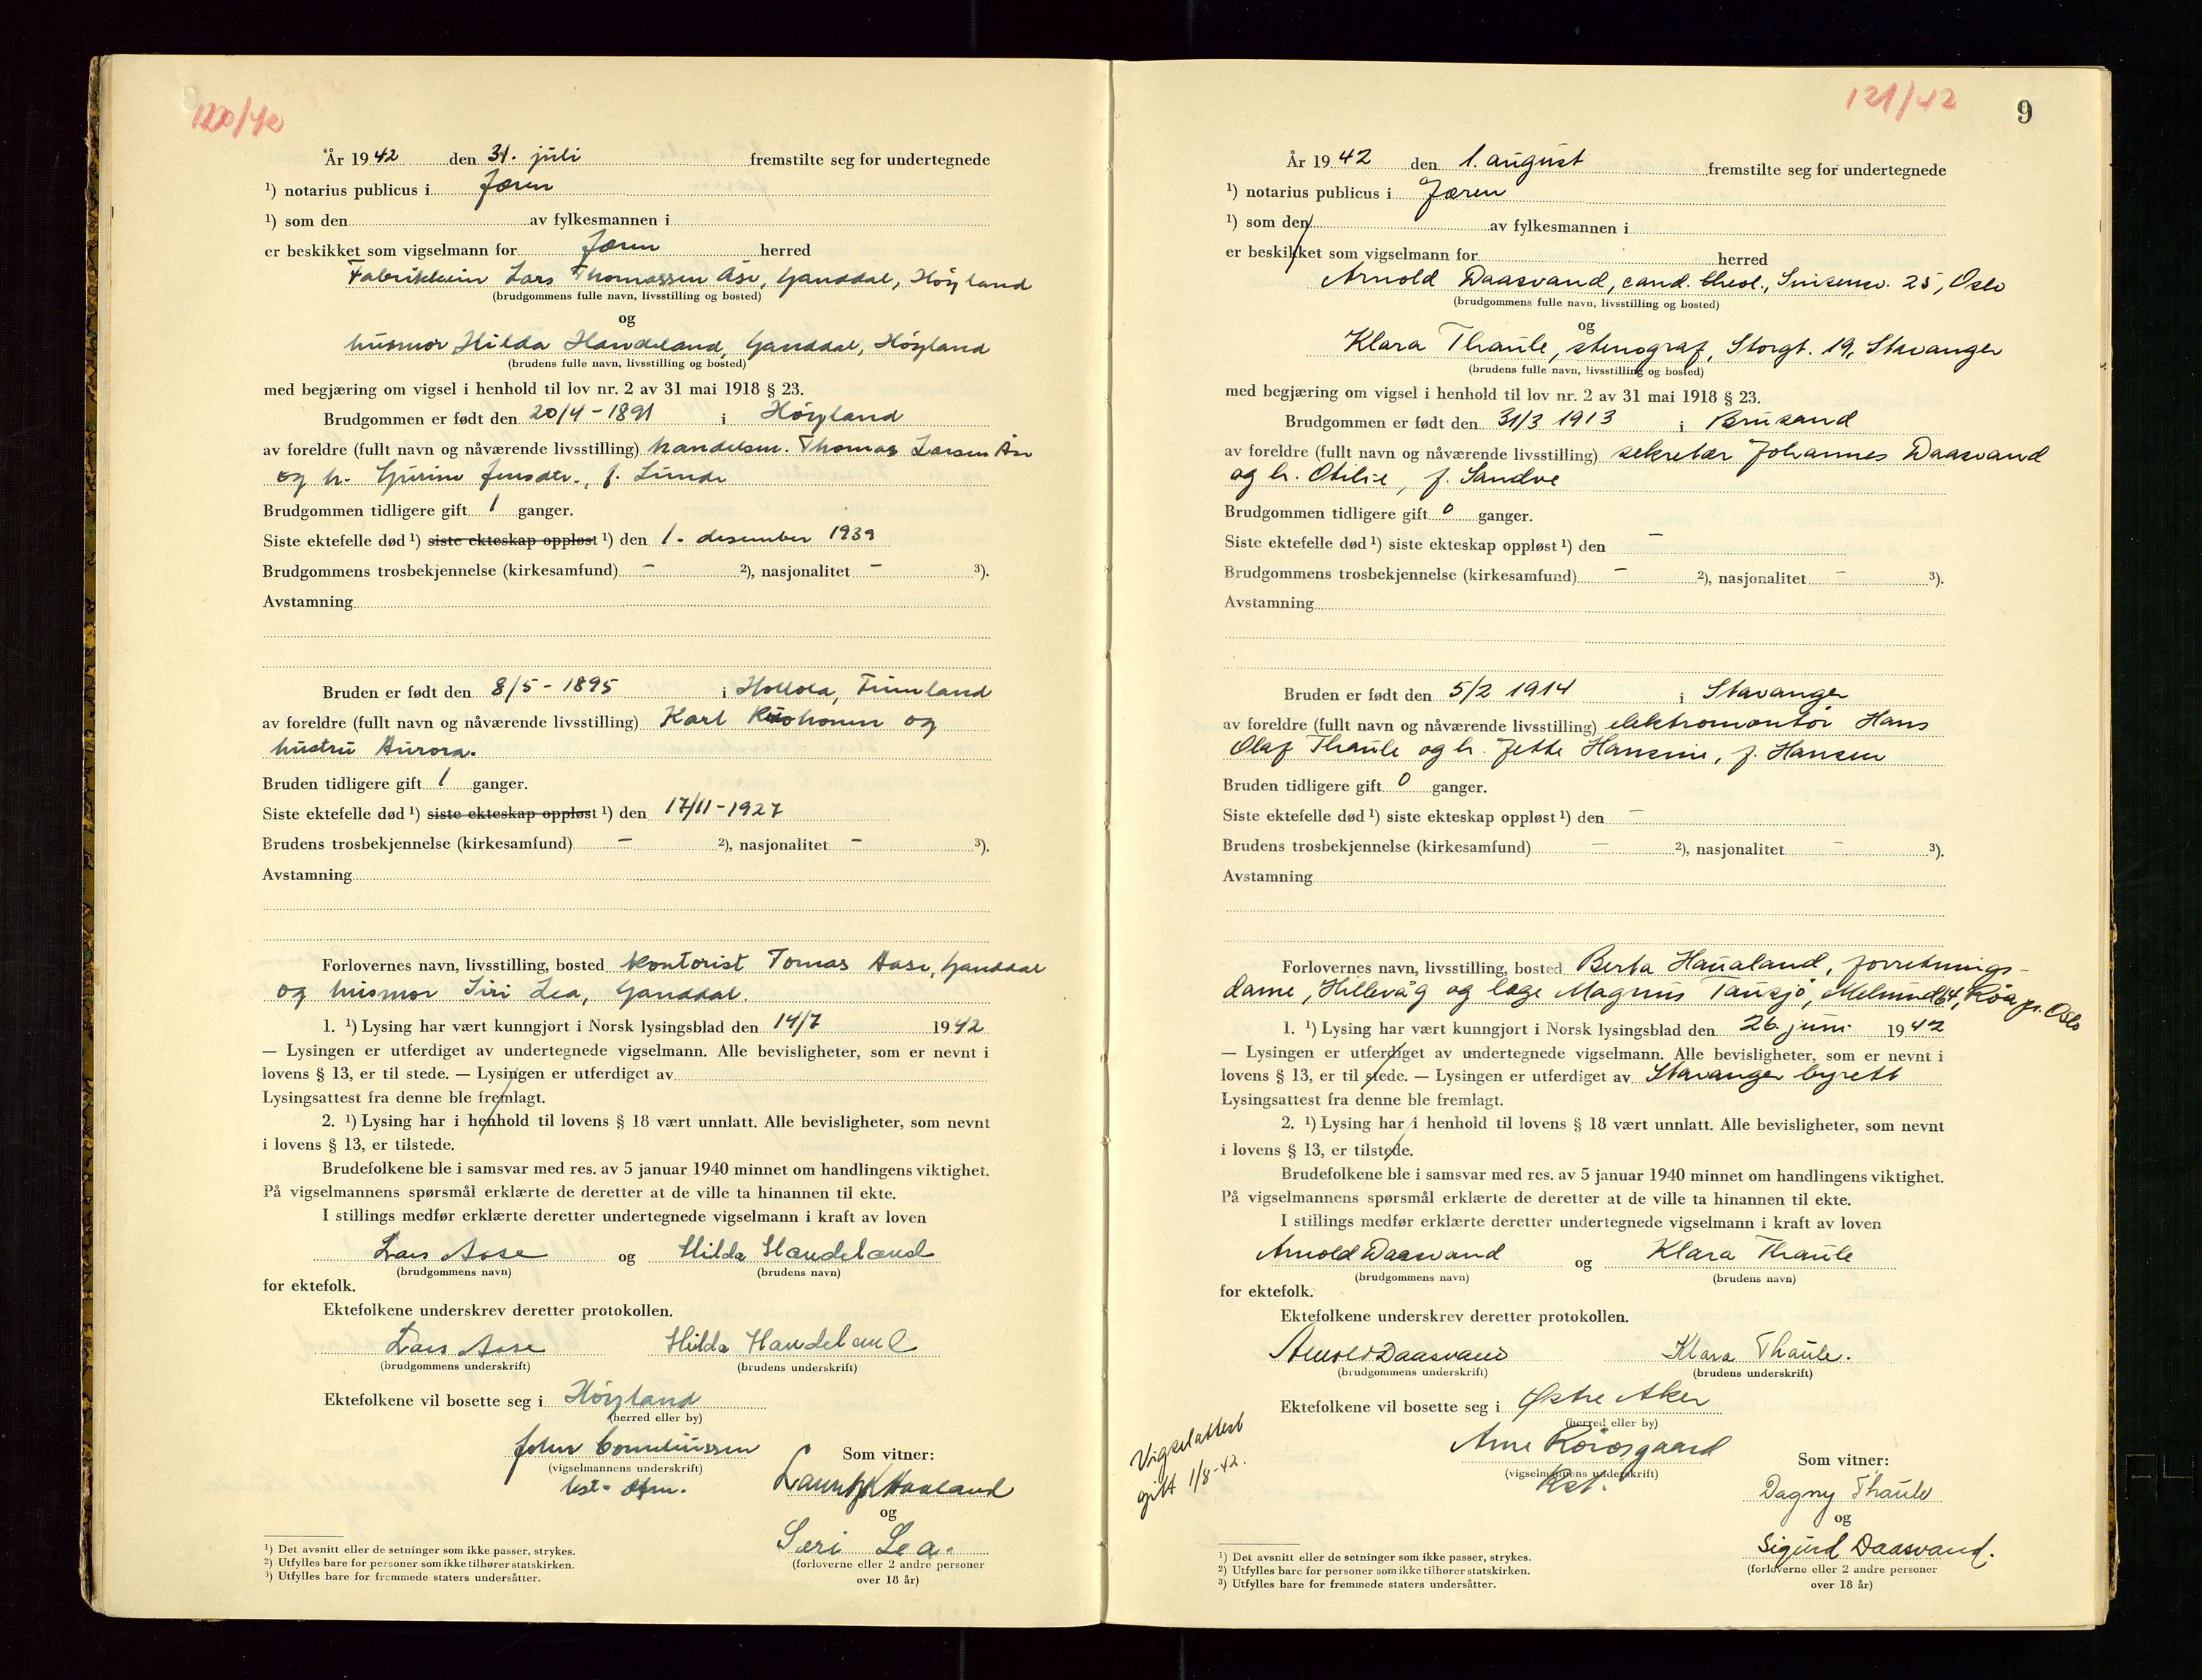 120/42
År 1942 den 31. juli fremstilte seg for undertegnede
¹) notarius publicus i Jæren
¹) som den av fylkesmannen i
er beskikket som vigselmann for Jæren herred
Lars Thomassen Åse, Ganddal, Höyland
(brudgommens fulle navn, livsstilling og bosted)
og
husmor Hilda Handeland, Ganddal, Höyland
(brudens fulle navn, livsstilling og bosted)
med begjæring om vigsel i henhold til lov nr. 2 av 31 mai 1918 § 23.
Brudgommen er født den 20/4 - 1891 i Höyland
av foreldre (fullt navn og nåværende livsstilling) handelsm. Thomas Larsen Åse
og h. Gurine Jensdtr., f. Lunde
Brudgommen tidligere gift 1 ganger.
Siste ektefelle død ¹) siste ekteskap oppløst ¹) den 1. desember 1939
Brudgommens trosbekjennelse (kirkesamfund) - ²), nasjonalitet - ³).
Avstamning
Bruden er født den 8/5 - 1895 i Hollola, Finnland
av foreldre (fullt navn og nåværende livsstilling) Karl og
hustru Aurora.
Bruden tidligere gift 1 ganger.
Siste ektefelle død ¹) siste ekteskap oppløst ¹) den 17/11 - 1927
Brudens trosbekjennelse (kirkesamfund) - ²), nasjonalitet - ³).
Avstamning
Forlovernes navn, livsstilling, bosted kontorist Tomas Aase, Ganddal
og husmor Siri Lea, Ganddal.
1. ¹) Lysing har vært kunngjort i Norsk lysingsblad den 14/7 1942
— Lysingen er utferdiget av undertegnede vigselmann. Alle bevisligheter, som er nevnt i
lovens § 13, er til stede. — Lysingen er utferdiget av
Lysingsattest fra denne ble fremlagt.
2. ¹) Lysing har i henhold til lovens § 18 vært unnlatt. Alle bevisligheter, som nevnt
i lovens § 13, er tilstede.
Brudefolkene ble i samsvar med res. av 5 januar 1940 minnet om handlingens viktighet.
På vigselmannens spørsmål erklærte de deretter at de ville ta hinannen til ekte.
I stillings medfør erklærte deretter undertegnede vigselmann i kraft av loven
Lars Aase og Hilda Handeland
(brudgommens navn) (brudens navn)
for ektefolk.
Ektefolkene underskrev deretter protokollen.
Lars Aase Hilda Handeland
(brudgommens underskrift) (brudens underskrift)
Ektefolkene vil bosette seg i Höyland
(herred eller by)
John Corneliussen Som vitner:
(vigselmannens underskrift)
Haaland
og
Seri Lea.
(forloverne eller 2 andre personer
over 18 år)
¹) Det avsnitt eller de setninger som ikke passer, strykes.
²) Utfylles bare for personer som ikke tilhører statskirken.
³) Utfylles bare for fremmede staters undersåtter.
121/42
9
År 1942 den 1. august fremstilte seg for undertegnede
¹) notarius publicus i Jæren
¹) som den av fylkesmannen i
er beskikket som vigselmann for herred
Arnold Daasvand, cand. theol., Sinsenv. 25, Oslo
(brudgommens fulle navn, livsstilling og bosted)
og
Klara Thaule, stenograf, Storgt. 19, Stavanger
(brudens fulle navn, livsstilling og bosted)
med begjæring om vigsel i henhold til lov nr. 2 av 31 mai 1918 § 23.
Brudgommen er født den 31/3 1913 i Brusand
av foreldre (fullt navn og nåværende livsstilling) sekretær Johannes Daasvand
og h. Otilie, f. Sandve
Brudgommen tidligere gift 0 ganger.
Siste ektefelle død ¹) siste ekteskap oppløst ¹) den -
Brudgommens trosbekjennelse (kirkesamfund) - ²), nasjonalitet - ³).
Avstamning
Bruden er født den 5/2 1914 i Stavanger
av foreldre (fullt navn og nåværende livsstilling) elektromontör Hans
Olaf Thaule og h. Jette Hansine, f. Hansen
Bruden tidligere gift 0 ganger.
Siste ektefelle død ¹) siste ekteskap oppløst ¹) den -
Brudens trosbekjennelse (kirkesamfund) - ²), nasjonalitet - ³).
Avstamning
Forlovernes navn, livsstilling, bosted Berta Haualand, forretnings-
dame, Hillevåg og læge Magnus Tausjö, Röa pr. Oslo
1. ¹) Lysing har vært kunngjort i Norsk lysingsblad den 26. juni 1942
— Lysingen er utferdiget av undertegnede vigselmann. Alle bevisligheter, som er nevnt i
lovens § 13, er til stede. — Lysingen er utferdiget av Stavanger byrett
Lysingsattest fra denne ble fremlagt.
2. ¹) Lysing har i henhold til lovens § 18 vært unnlatt. Alle bevisligheter, som nevnt
i lovens § 13, er tilstede.
Brudefolkene ble i samsvar med res. av 5 januar 1940 minnet om handlingens viktighet.
På vigselmannens spørsmål erklærte de deretter at de ville ta hinannen til ekte.
I stillings medfør erklærte deretter undertegnede vigselmann i kraft av loven
Arnold Daasvand og Klara Thaule
(brudgommens navn) (brudens navn)
for ektefolk.
Ektefolkene underskrev deretter protokollen.
Arnold Daasvand Klara Thaule.
(brudgommens underskrift) (brudens underskrift)
Ektefolkene vil bosette seg i Østre Aker
(herred eller by)
Vigselattest
gitt 1/8-42.
Arne Som vitner:
(vigselmannens underskrift)
Kst.
Dagny Thaule
og
Sigurd Daasvand.
(forloverne eller 2 andre personer
over 18 år)
¹) Det avsnitt eller de setninger som ikke passer, strykes.
²) Utfylles bare for personer som ikke tilhører statskirken.
³) Utfylles bare for fremmede staters undersåtter.